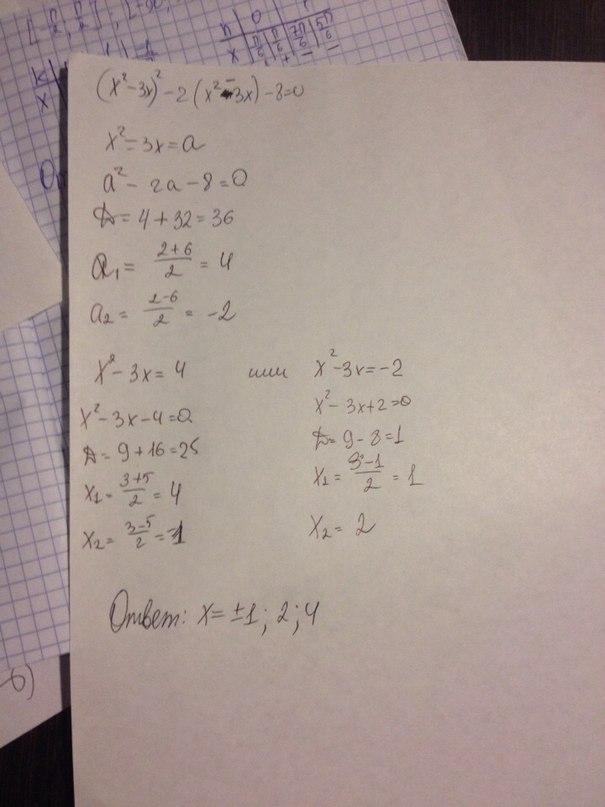 (x²-3x)²-2(x²-3x)-8=0
x²-3x=a
a²-2a-8=0
D=4+32=36
a₁=\frac{2+6}{2}=4
a₂=\frac{2-6}{2}=-2
x²-3x=4 или x²-3x=-2
x²-3x-4=0
D=9+16=25
x₁=\frac{3+5}{2}=4
x₂=\frac{3-5}{2}=-1
x²-3x+2=0
D=9-8=1
x₁=\frac{3-1}{2}=1
x₂=2
Ответ: x=±1; 2; 4
б)